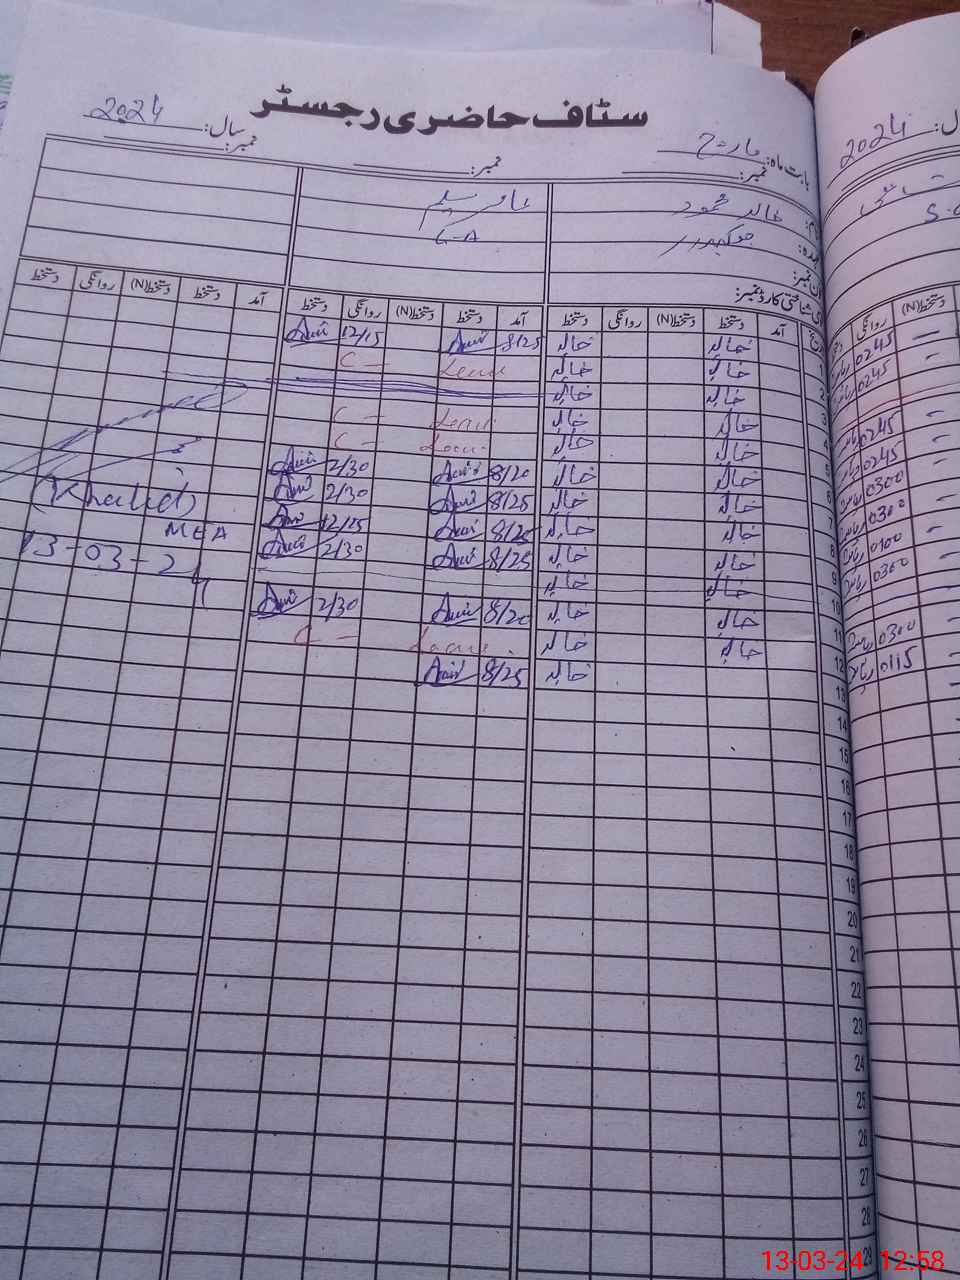 سٹاف حاضری رجسٹر
بابت ماہ: مارچ سال: 2024
نمبر: نمبر: نمبر:
خالد محمود عامر سلیم
چوکیدار C-A
شناختی کارڈ نمبر:
آمد دستخط دستخط(N) روانگی دستخط آمد دستخط دستخط(N) روانگی دستخط آمد دستخط دستخط(N) روانگی دستخط
1 خالد خالد 8/25 Amir 12/15
2 خالد خالد Leave C-
3 خالد خالد
4 خالد خالد Leave C-
5 خالد خالد Leave C-
6 خالد خالد 8/20 Amir 2/30
7 خالد خالد 8/25 Amir 2/30
8 خالد خالد 8/25 Amir 12/15
9 خالد خالد 8/25 Amir 2/30
10 خالد خالد
11 خالد خالد 8/20 Amir 2/30
12 خالد خالد Leave C-
13 خالد 8/25 Amir
14
15
16
17
18
19
20
21
22
23
24
25
26
27
28
29
(Khalid)
MEA
13-03-24
2024
روانگی دستخط(N)
0245
0245
0245
0245
0300
0300
0100
0300
0300
0115
13-03-24 12:58